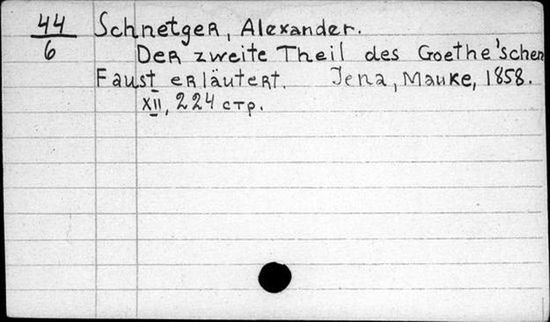 44/6 Schnetger, Alexander.
Der zweite Theil des Goethe'schen
Faust erläutert. Jena, Mauke, 1858.
XII, 224 стр.